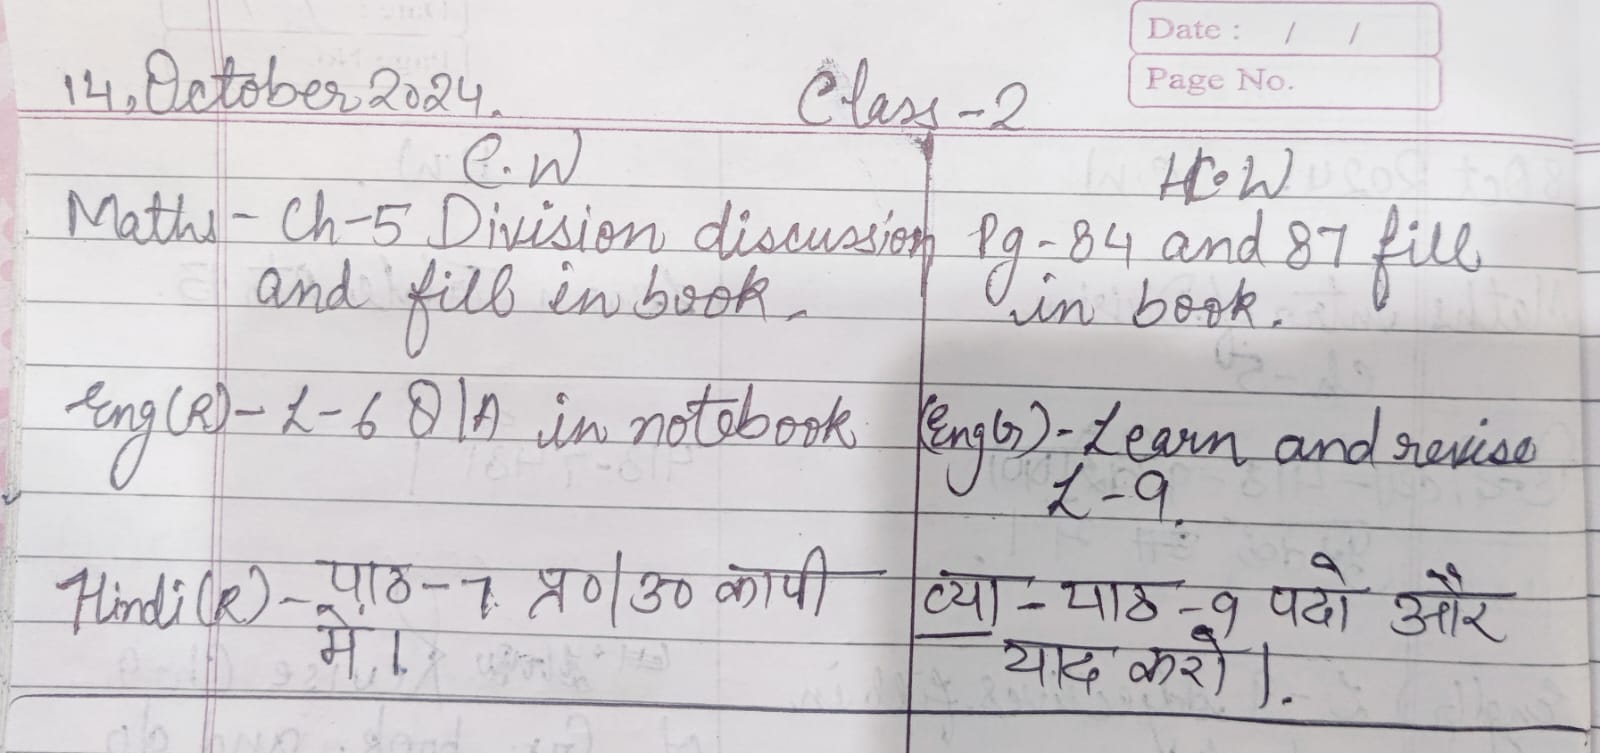 Date : / /
Page No.
14, October 2024.
Class-2
C.W
H.W
Maths - Ch-5 Division discussion
and fill in book.
Pg-84 and 87 fill
in book.
Eng(R)- L-6 Q/A in notebook
(Eng(G)- Learn and revise
L-9.
Hindi(R)- पाठ-7 प्र०/उ० कापी
मे।
व्या - पाठ-9 पढो और
याद करो।.